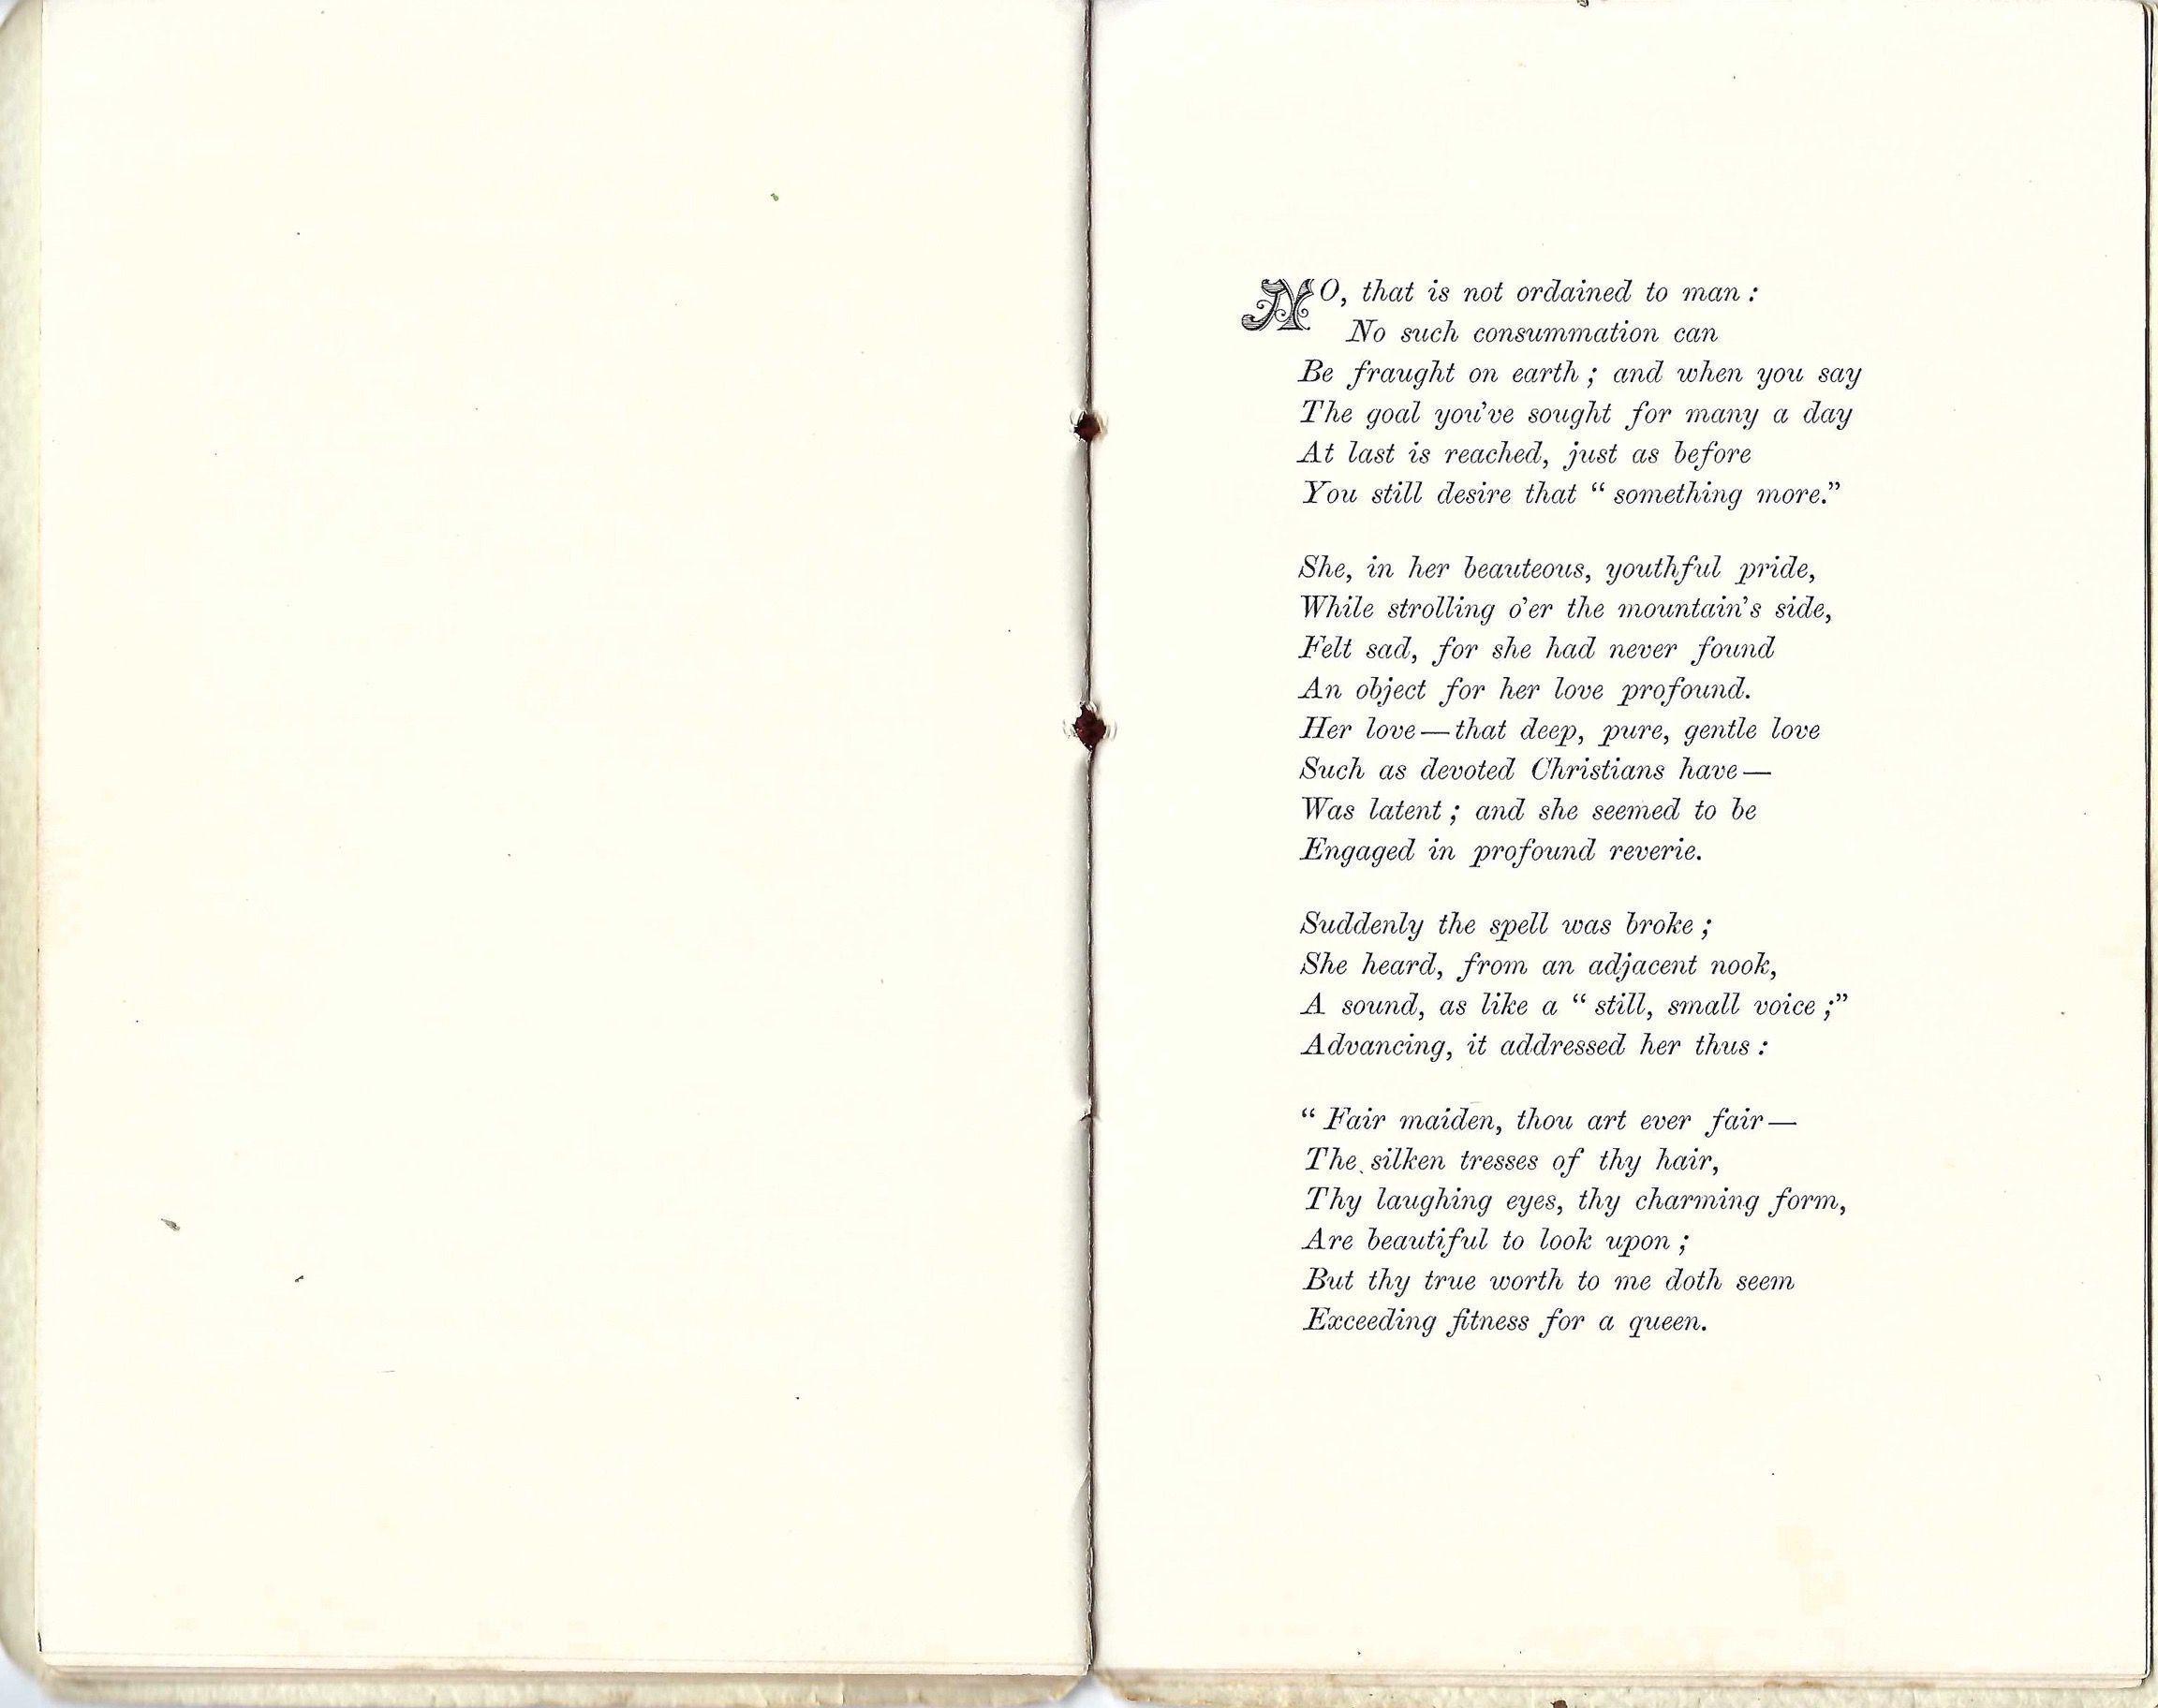 NO, that is not ordained to man :
No such consummation can
Be fraught on earth ; and when you say
The goal you've sought for many a day
At last is reached, just as before
You still desire that “ something more.”
She, in her beauteous, youthful pride,
While strolling o'er the mountain's side,
Felt sad, for she had never found
An object for her love profound.
Her love — that deep, pure, gentle love
Such as devoted Christians have —
Was latent ; and she seemed to be
Engaged in profound reverie.
Suddenly the spell was broke ;
She heard, from an adjacent nook,
A sound, as like a “ still, small voice ;”
Advancing, it addressed her thus :
“ Fair maiden, thou art ever fair —
The silken tresses of thy hair,
Thy laughing eyes, thy charming form,
Are beautiful to look upon ;
But thy true worth to me doth seem
Exceeding fitness for a queen.